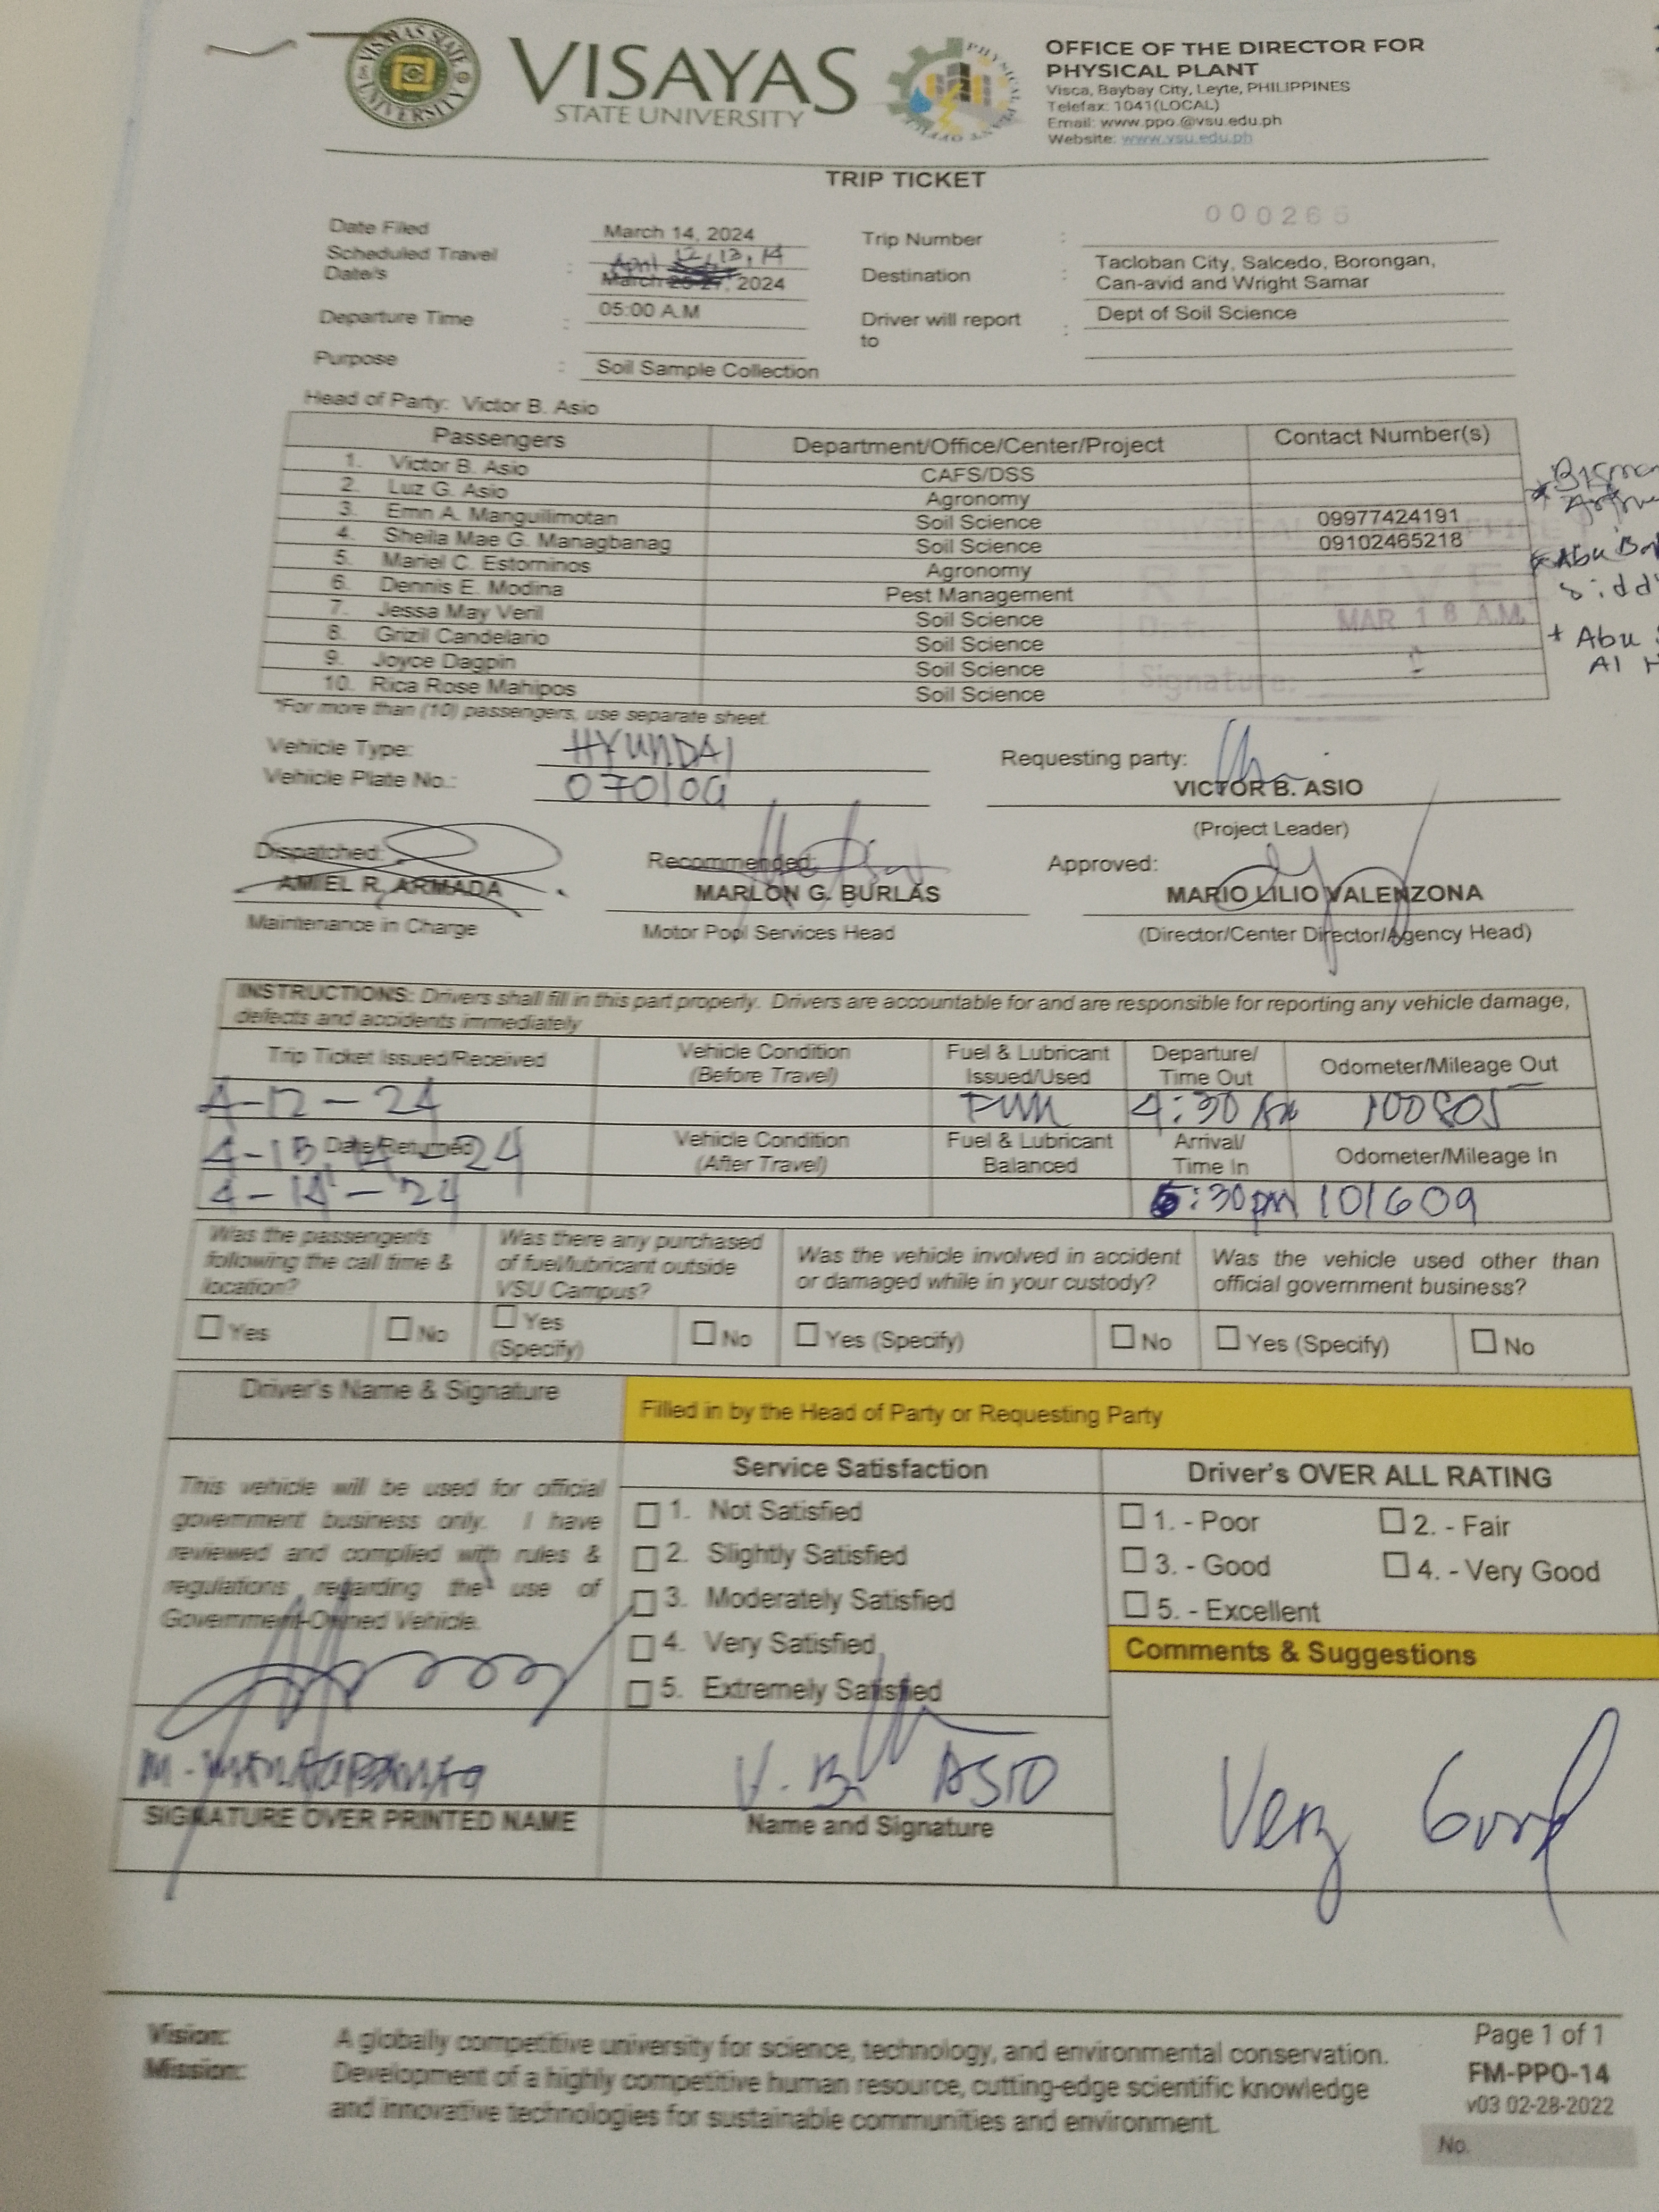 VISAYAS STATE UNIVERSITY
VISAYAS
STATE UNIVERSITY
OFFICE OF THE DIRECTOR FOR
PHYSICAL PLANT
Visca, Baybay City, Leyte, PHILIPPINES
Telefax: 1041(LOCAL)
Email: www.ppo.@vsu.edu.ph
Website: www.vsu.edu.ph
TRIP TICKET
Date Filed March 14, 2024
Trip Number : 000266
Scheduled Travel Date/s : April 12,13,14
March 25-27, 2024
Destination : Tacloban City, Salcedo, Borongan,
Can-avid and Wright Samar
Departure Time : 05:00 A.M
Driver will report to : Dept of Soil Science
Purpose : Soil Sample Collection
Head of Party: Victor B. Asio
Passengers Department/Office/Center/Project Contact Number(s)
1. Victor B. Asio CAFS/DSS
2. Luz G. Asio Agronomy
3. Emn A. Manguilimotan Soil Science 09977424191
4. Sheila Mae G. Managbanag Soil Science 09102465218
5. Mariel C. Estorninos Agronomy
6. Dennis E. Modina Pest Management
7. Jessa May Veril Soil Science
8. Grizil Candelario Soil Science
9. Joyce Dagpin Soil Science
10. Rica Rose Mahipos Soil Science
RECEIVE
Date:
MAR 18 A.M.
Signature:
* Abu
+ Abu
Al
*For more than (10) passengers, use separate sheet.
Vehicle Type: HYUNDAI
Vehicle Plate No.: 070109
Requesting party:
VICTOR B. ASIO
(Project Leader)
Dispatched: Recommended: Approved:
AMIEL R. ARMADA MARLON G. BURLAS MARIO LILIO VALENZONA
Maintenance in Charge Motor Pool Services Head (Director/Center Director/Agency Head)
INSTRUCTIONS: Drivers shall fill in this part properly. Drivers are accountable for and are responsible for reporting any vehicle damage,
defects and accidents immediately
Trip Ticket Issued/Received Vehicle Condition (Before Travel) Fuel & Lubricant Issued/Used Departure/ Time Out Odometer/Mileage Out
4-12-24 Full 4:30 AM 100805
Date Returned Vehicle Condition (After Travel) Fuel & Lubricant Balanced Arrival/ Time In Odometer/Mileage In
4-14-24 5:30pm 101609
Was the passenger's following the call time & location?
Was there any purchased of fuel/lubricant outside VSU Campus?
Was the vehicle involved in accident or damaged while in your custody?
Was the vehicle used other than official government business?
Yes No Yes (Specify) No Yes (Specify) No Yes (Specify) No
Driver's Name & Signature
Filled in by the Head of Party or Requesting Party
This vehicle will be used for official
government business only. I have
reviewed and complied with rules &
regulations regarding the use of
Government-Owned Vehicle.
Service Satisfaction
1. Not Satisfied
2. Slightly Satisfied
3. Moderately Satisfied
4. Very Satisfied
5. Extremely Satisfied
Driver's OVER ALL RATING
1. - Poor 2. - Fair
3. - Good 4. - Very Good
5. - Excellent
Comments & Suggestions
Very Good
SIGNATURE OVER PRINTED NAME
V. B. ASIO
Name and Signature
Vision: A globally competitive university for science, technology, and environmental conservation.
Mission: Development of a highly competitive human resource, cutting-edge scientific knowledge
and innovative technologies for sustainable communities and environment.
Page 1 of 1
FM-PPO-14
v03 02-28-2022
No.